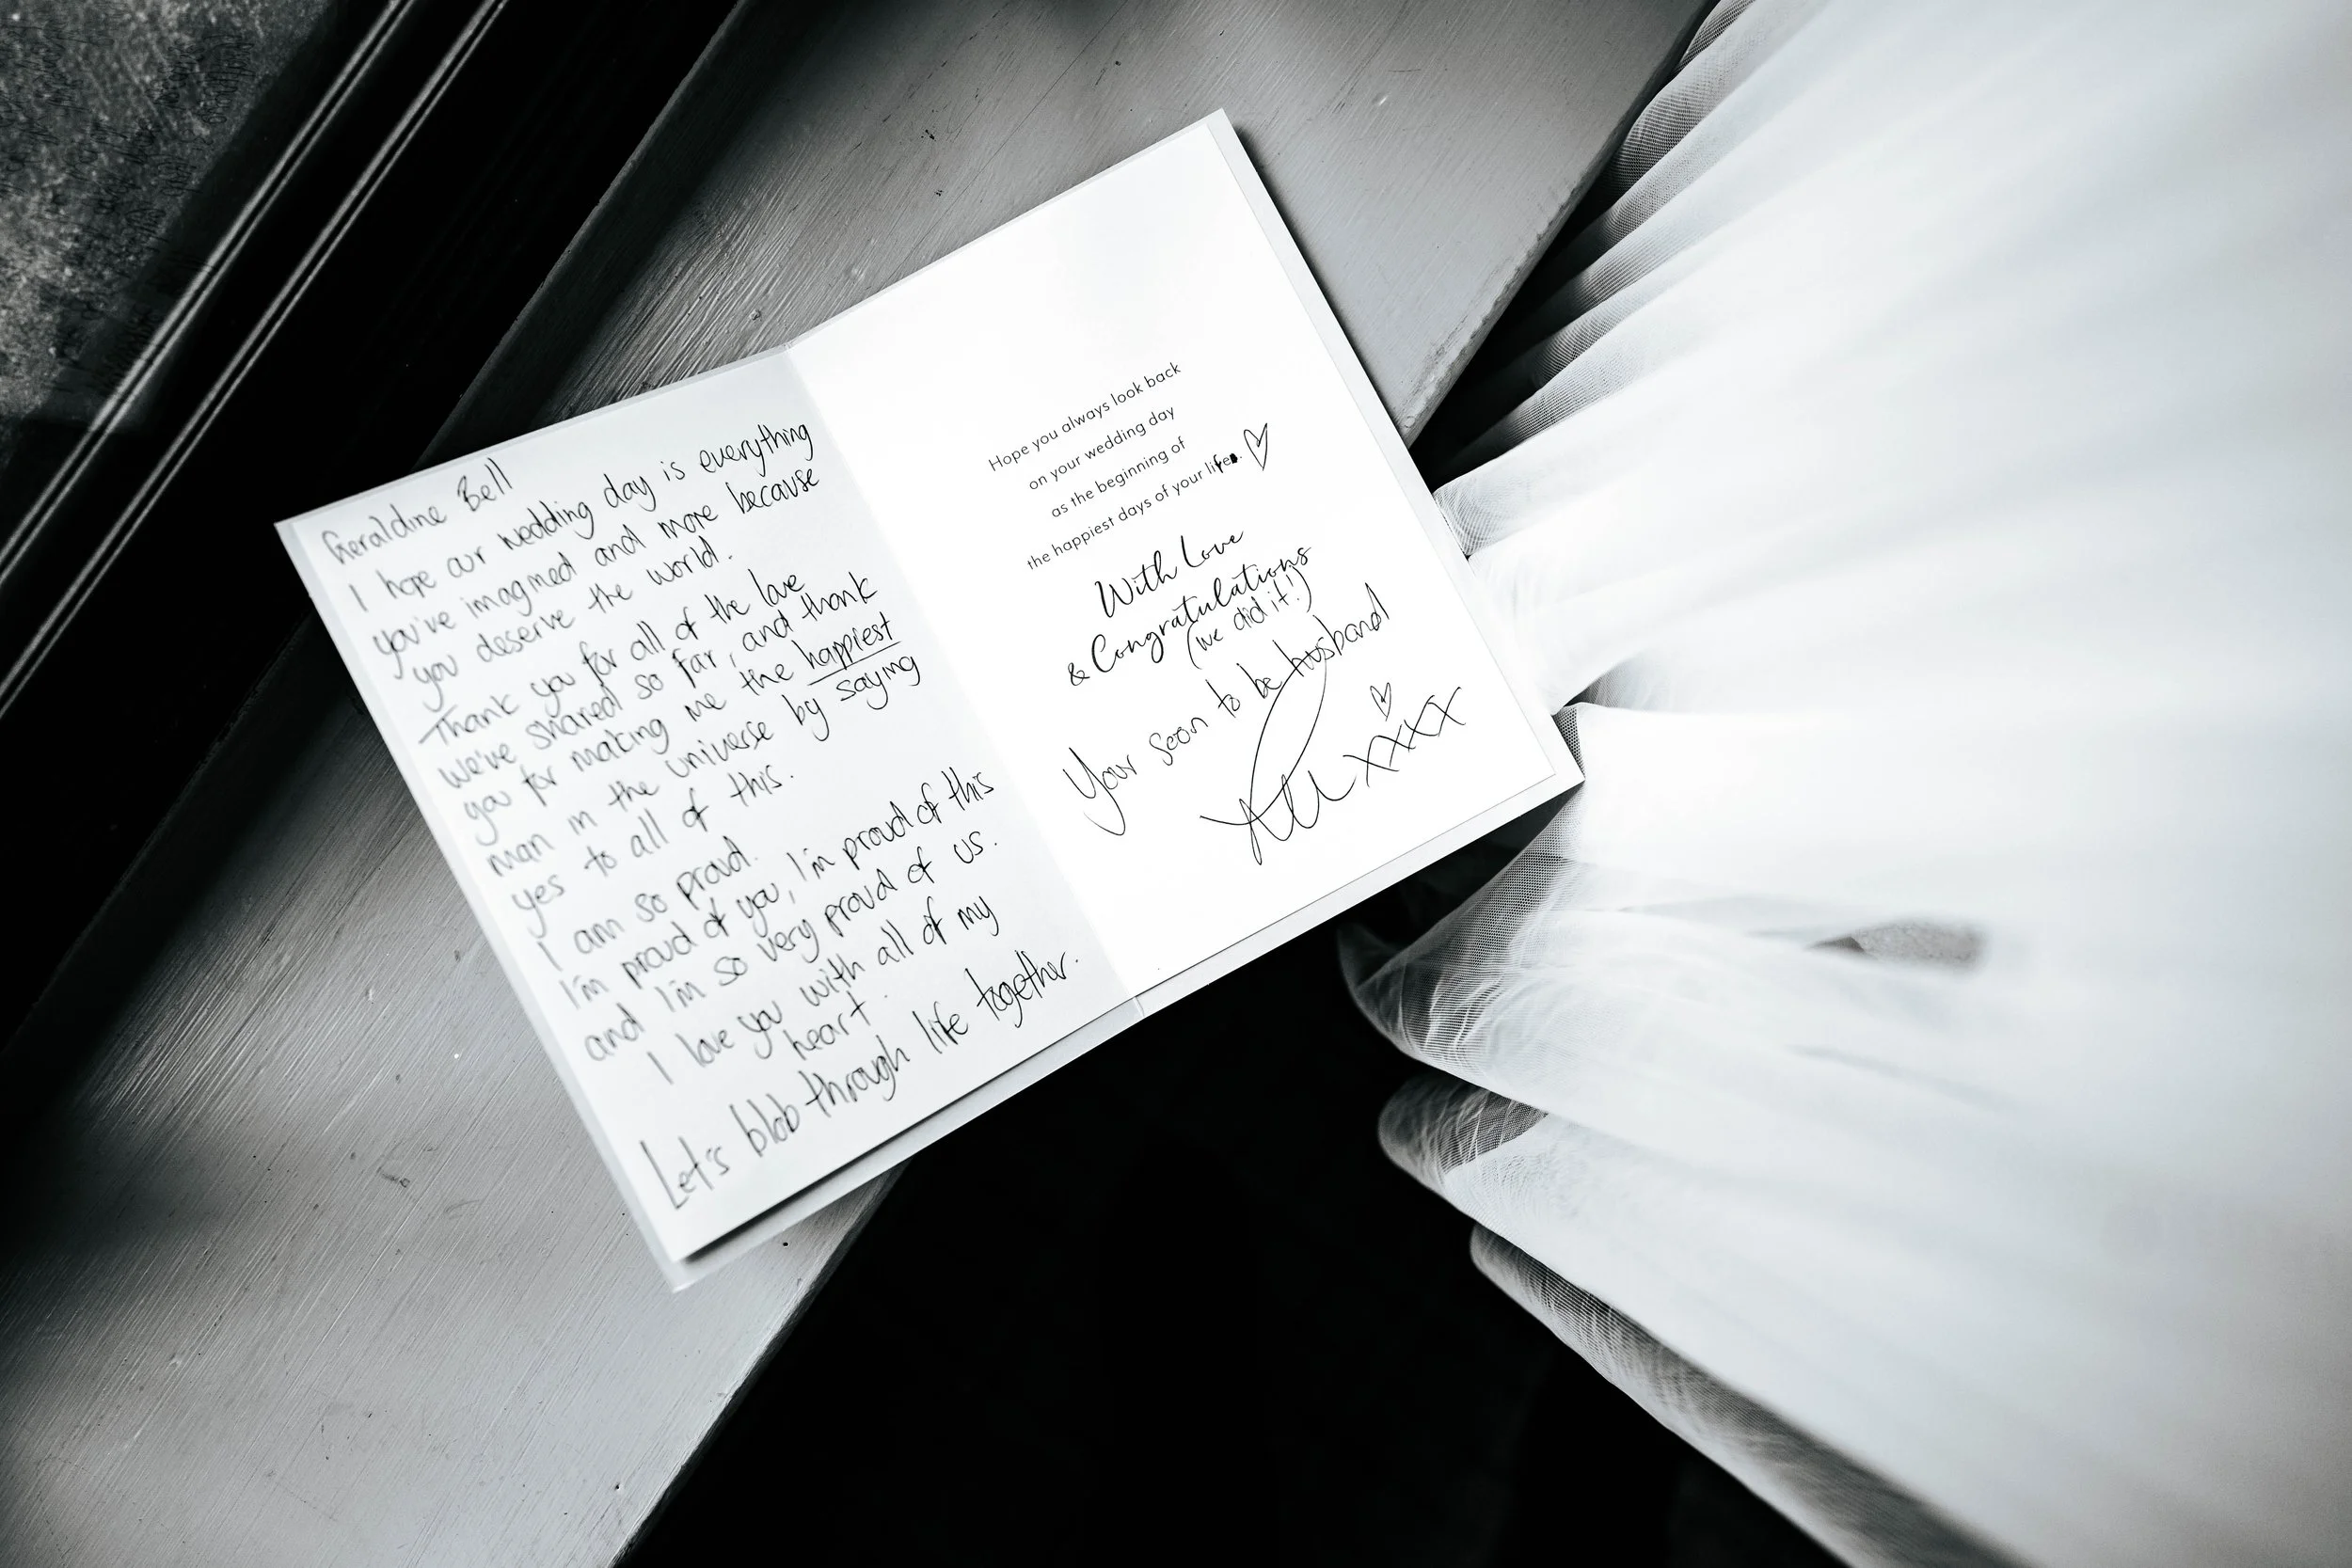 Geraldine Bell
I hope our wedding day is everything
you've imagined and more because
you deserve the world.
Thank you for all of the love
we've shared so far, and thank
you for making me the happiest
man in the universe by saying
yes to all of this.
I am so proud.
I'm proud of you, I'm proud of this
and I'm so very proud of us.
I love you with all of my
heart.
Let's blob through life together.
Hope you always look back
on your wedding day
as the beginning of
the happiest days of your life. ♡
With Love
& Congratulations
(we did it!)
Your soon to be husband
xxxx ♡